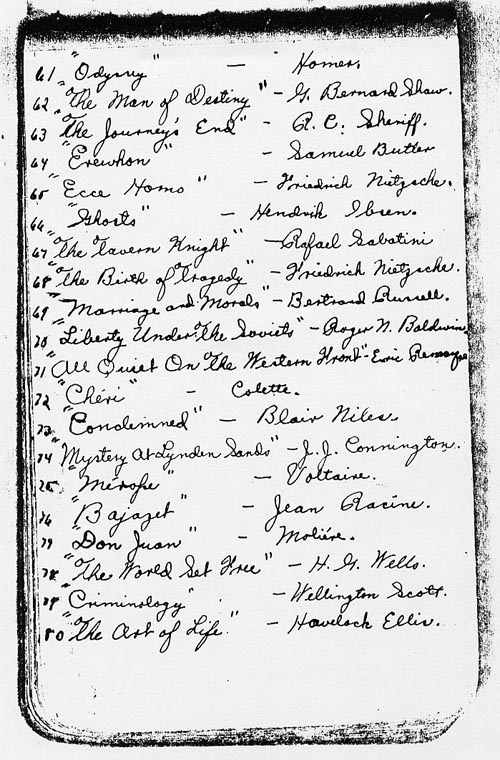 61 "Odyssey" — Homer.
62 "The Man of Destiny" - G. Bernard Shaw.
63 "The Journey's End" - R. C. Sheriff.
64 "Erewhon" - Samuel Butler
65 "Ecce Homo" - Friedrich Nietzsche.
66 "Ghosts" - Hendrik Ibsen.
67 "The Tavern Knight" - Rafael Sabatini
68 "The Birth of Tragedy" - Friedrich Nietzsche.
69 "Marriage and Morals" - Bertrand Russell.
70 "Liberty Under The Soviets" - Roger N. Baldwin
71 "All Quiet On The Western Front" - Eric Remarque
72 "Chéri" - Colette.
73 "Condemned" - Blair Niles.
74 "Mystery At Lynden Sands" - J. J. Connington.
75 "Mérope" - Voltaire.
76 "Bajazet" - Jean Racine.
77 "Don Juan" - Moliére.
78 "The World Set Free" - H. G. Wells.
79 "Criminology" - Wellington Scott.
80 "The Art of Life" - Havelock Ellis.